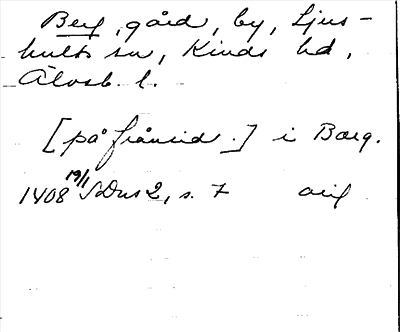 Berg, gård, by, Ljus-
hults sn, Kinds hd,
Älvsb. l.
[på frånsid.] i Barg.
1408 19/1 SDns 2, s. 7 orig